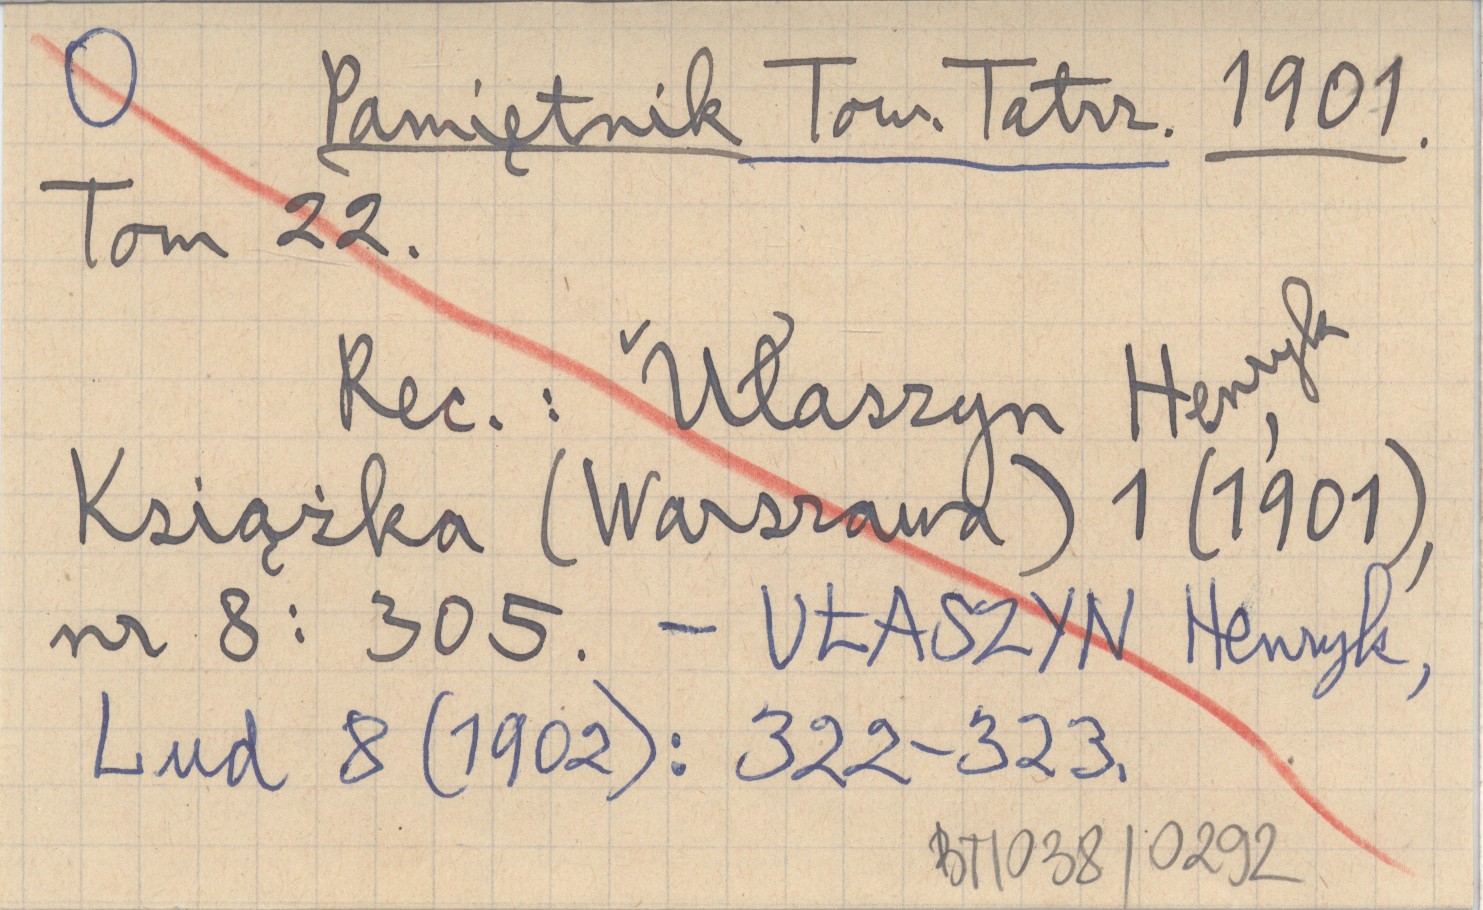 O Pamiętnik Tow. Tatrz. 1901.
Tom 22.
Rec.: Ułaszyn Henryk,
Książka (Warszawa) 1 (1901),
nr 8: 305. – UŁASZYN Henryk,
Lud 8 (1902): 322–323.
BT/038/0292